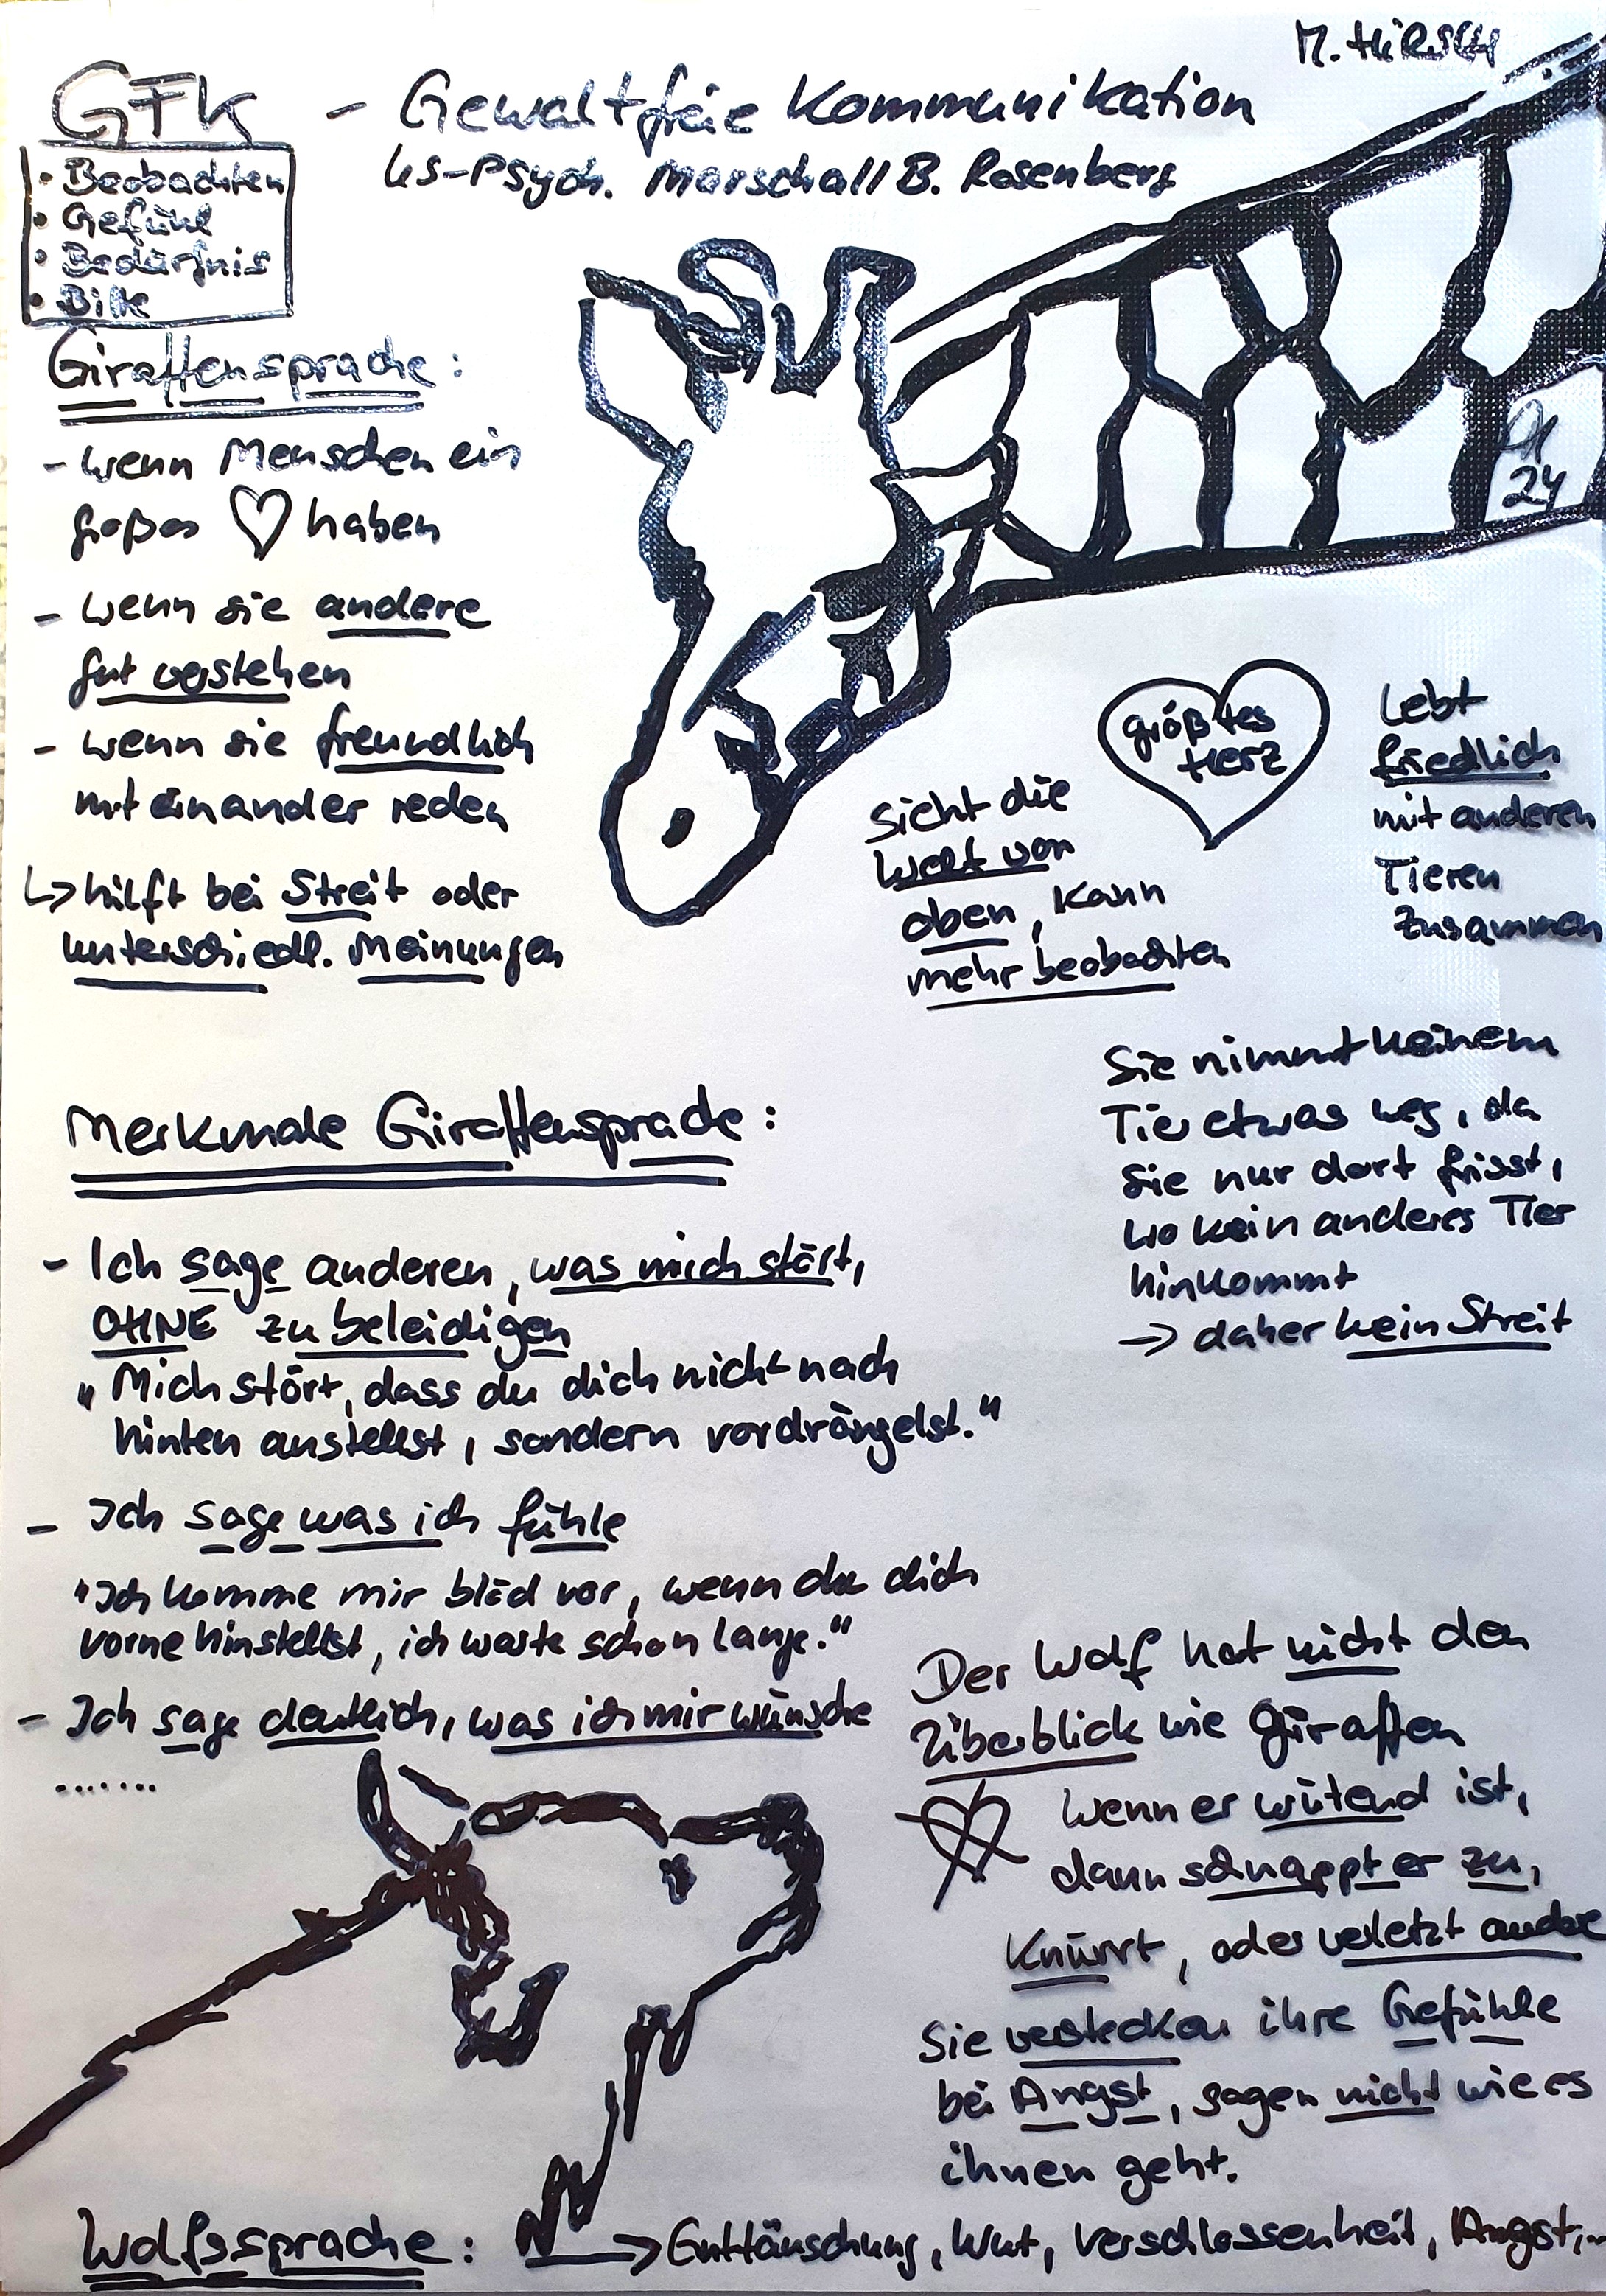 M. Hirsch
GFK - Gewaltfreie Kommunikation
US-Psych. Marschall B. Rosenberg
• Beobachten
• Gefühl
• Bedürfnis
• Bitte
Giraffensprache:
- wenn Menschen ein
großes ♡ haben
- wenn sie andere
gut verstehen
- wenn sie freundlich
miteinander reden
↳ hilft bei Streit oder
unterschiedl. Meinungen
24
größtes
Herz
Sieht die
Welt von
oben, kann
mehr beobachten
Lebt
friedlich
mit anderen
Tieren
zusammen
Sie nimmt keinem
Tier etwas weg, da
sie nur dort frisst,
wo kein anderes Tier
hinkommt
→ daher kein Streit
Merkmale Giraffensprache:
- Ich sage anderen, was mich stört,
OHNE zu beleidigen
"Mich stört, dass du dich nicht nach
hinten anstellst, sondern vordrängelst."
- Ich sage was ich fühle
"Ich komme mir blöd vor, wenn du dich
vorne hinstellst, ich warte schon lange."
- Ich sage deutlich, was ich mir wünsche
.......
Der Wolf hat nicht den
Überblick wie Giraffen
Wenn er wütend ist,
dann schnappt er zu,
Knurrt, oder verletzt andere
Sie verstecken ihre Gefühle
bei Angst, sagen nicht wie es
ihnen geht.
Wolfssprache: → Enttäuschung, Wut, Verschlossenheit, Angst,...